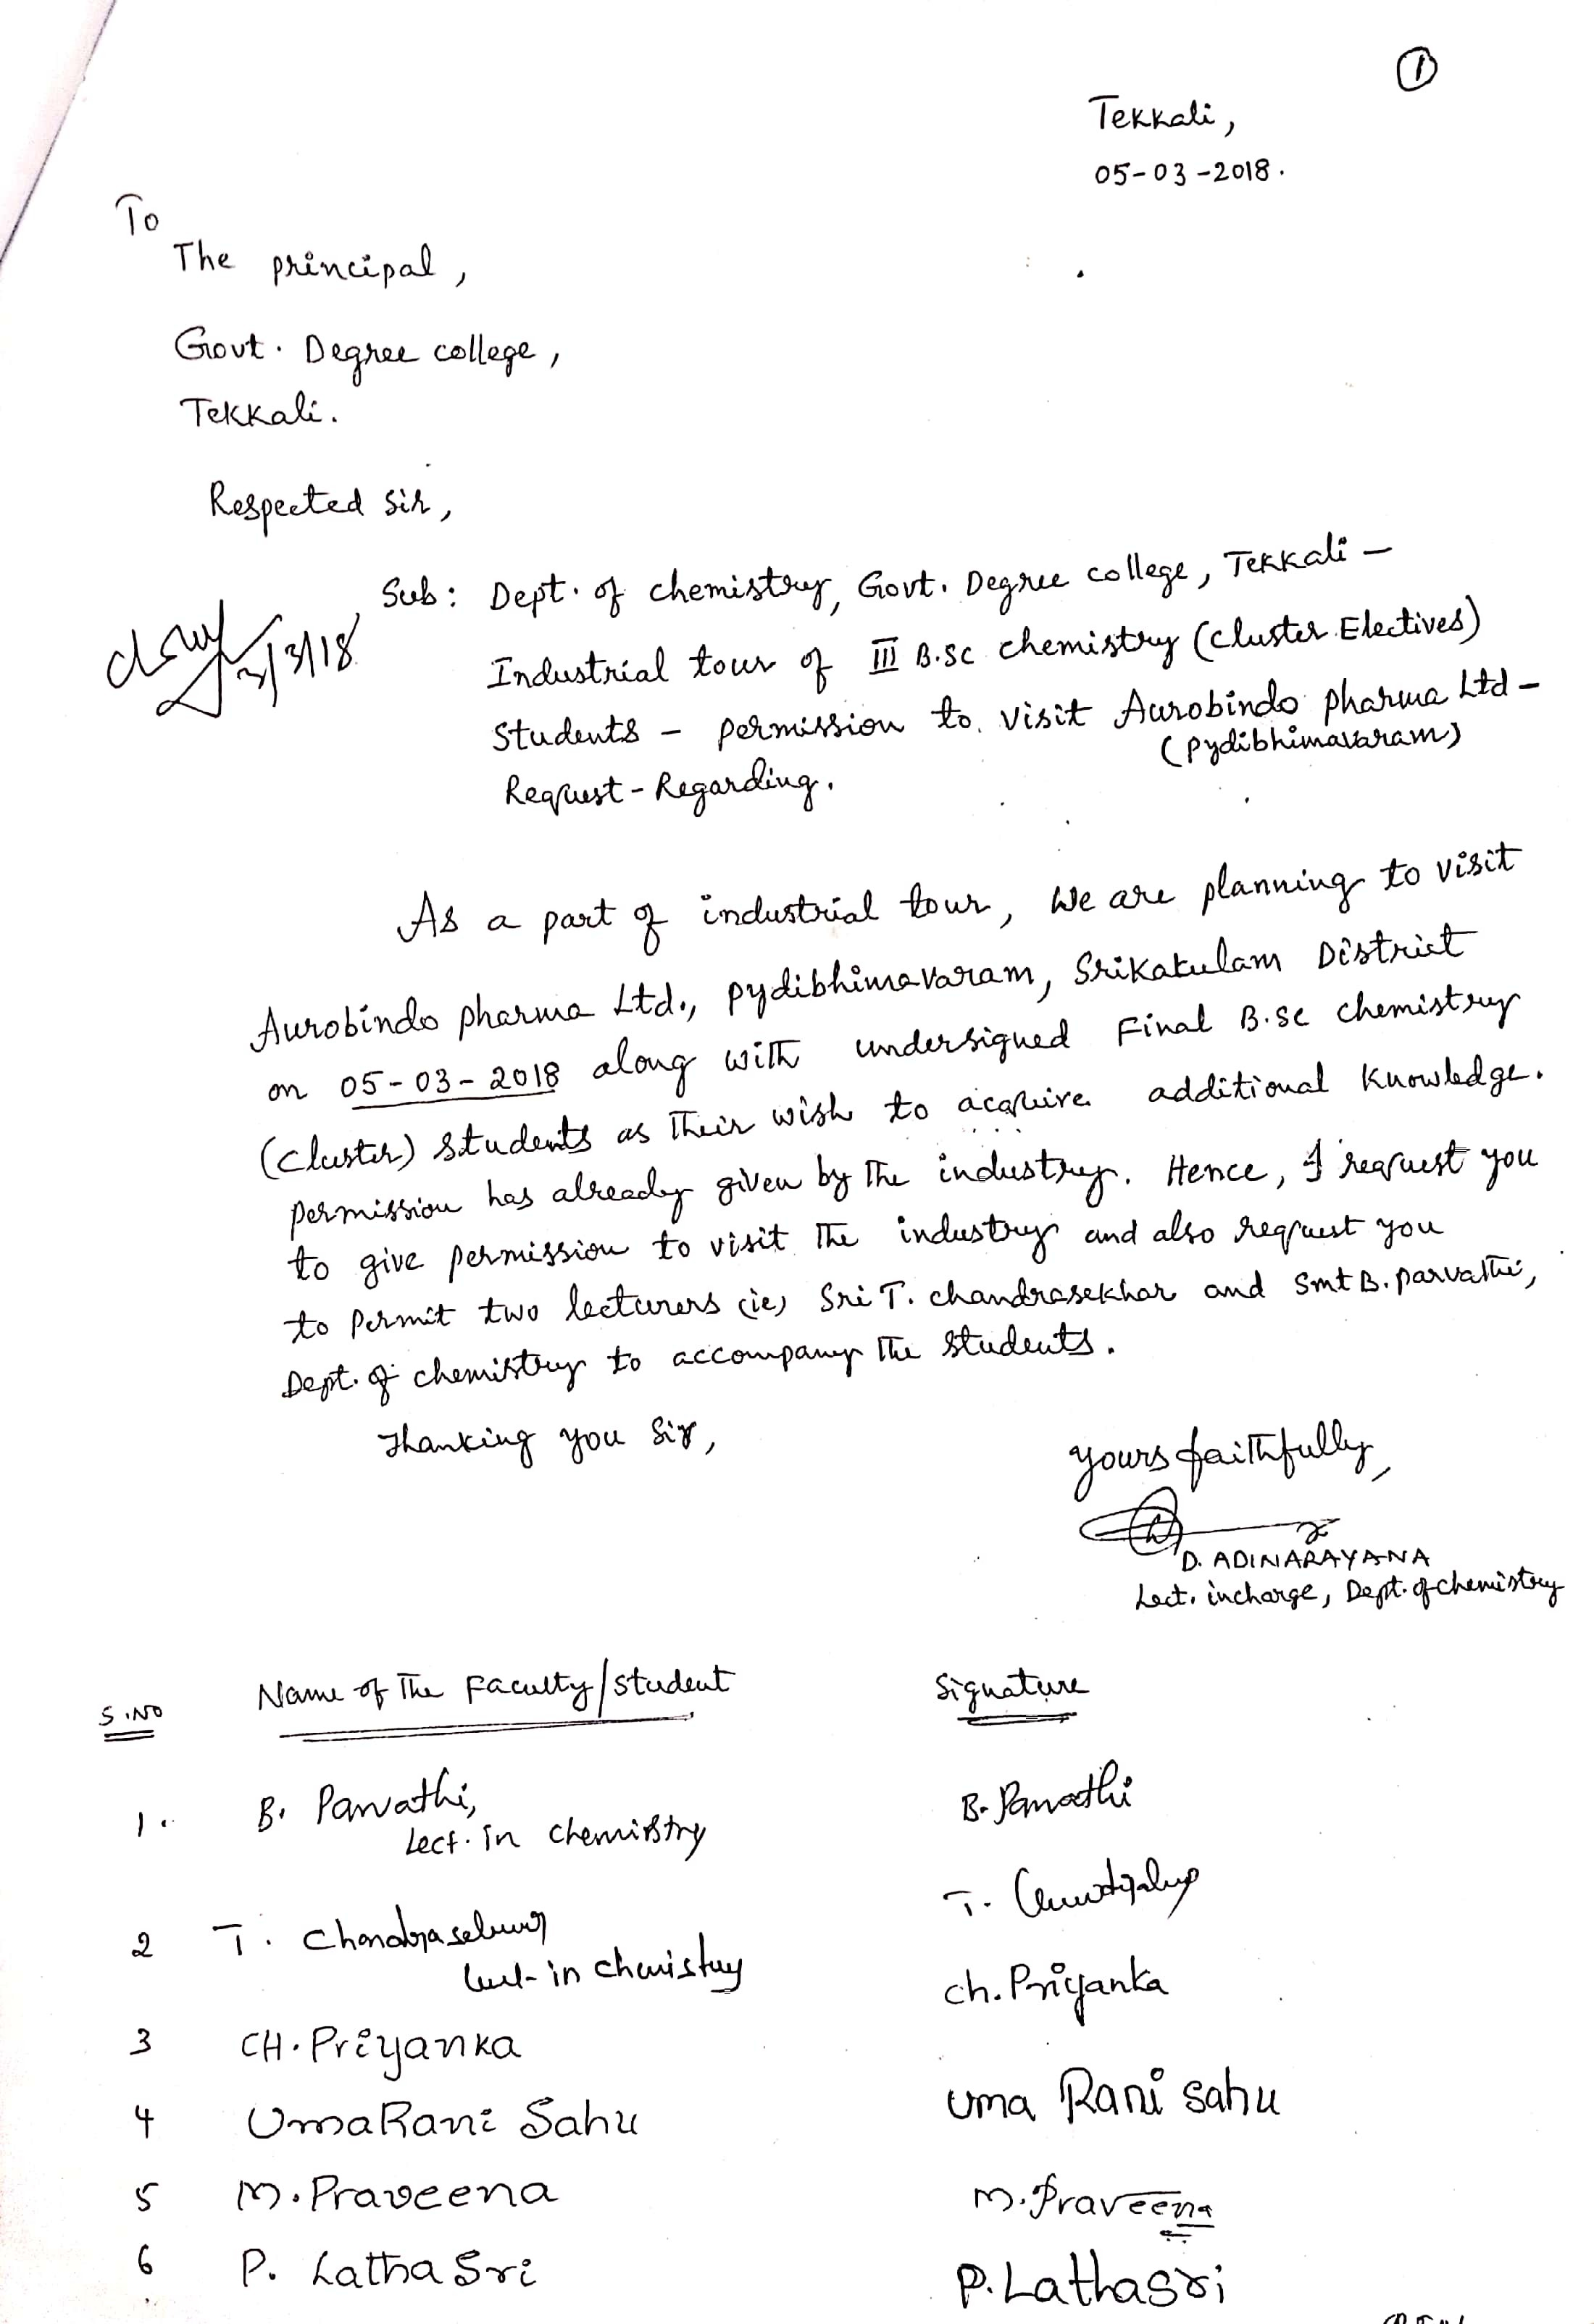 ①
Tekkali,
05-03-2018.
To
The principal,
Govt. Degree college,
Tekkali.
Respected Sir,
Sub: Dept. of chemistry, Govt. Degree college, Tekkali –
Industrial tour of III B.Sc chemistry (cluster Electives)
Students – permission to visit Aurobindo pharma Ltd –
(pydibhimavaram)
Request - Regarding.
3/3/18
As a part of industrial tour, We are planning to visit
Aurobindo pharma Ltd., pydibhimavaram, Srikakulam District
on 05-03-2018 along with undersigned Final B.Sc chemistry
(cluster) students as their wish to acquire additional knowledge.
permission has already given by the industry. Hence, I request you
to give permission to visit the industry and also request you
to permit two lecturers (ie) Sri T. chandrasekhar and Smt B. parvathi,
Dept. of chemistry to accompany the students.
Thanking you Sir,
yours faithfully,
D. ADINARAYANA
Lect. incharge, Dept. of chemistry
S.NO Name of the Faculty/student Signature
1. B. Parvathi, B. Parvathi
Lect. in chemistry
2 T. Chandrasekhar T.
Lect in chemistry
3 CH. Priyanka ch. Priyanka
4 UmaRani Sahu uma Rani sahu
5 M. Praveena M. Praveena
6 P. Latha Sri P. Lathasri